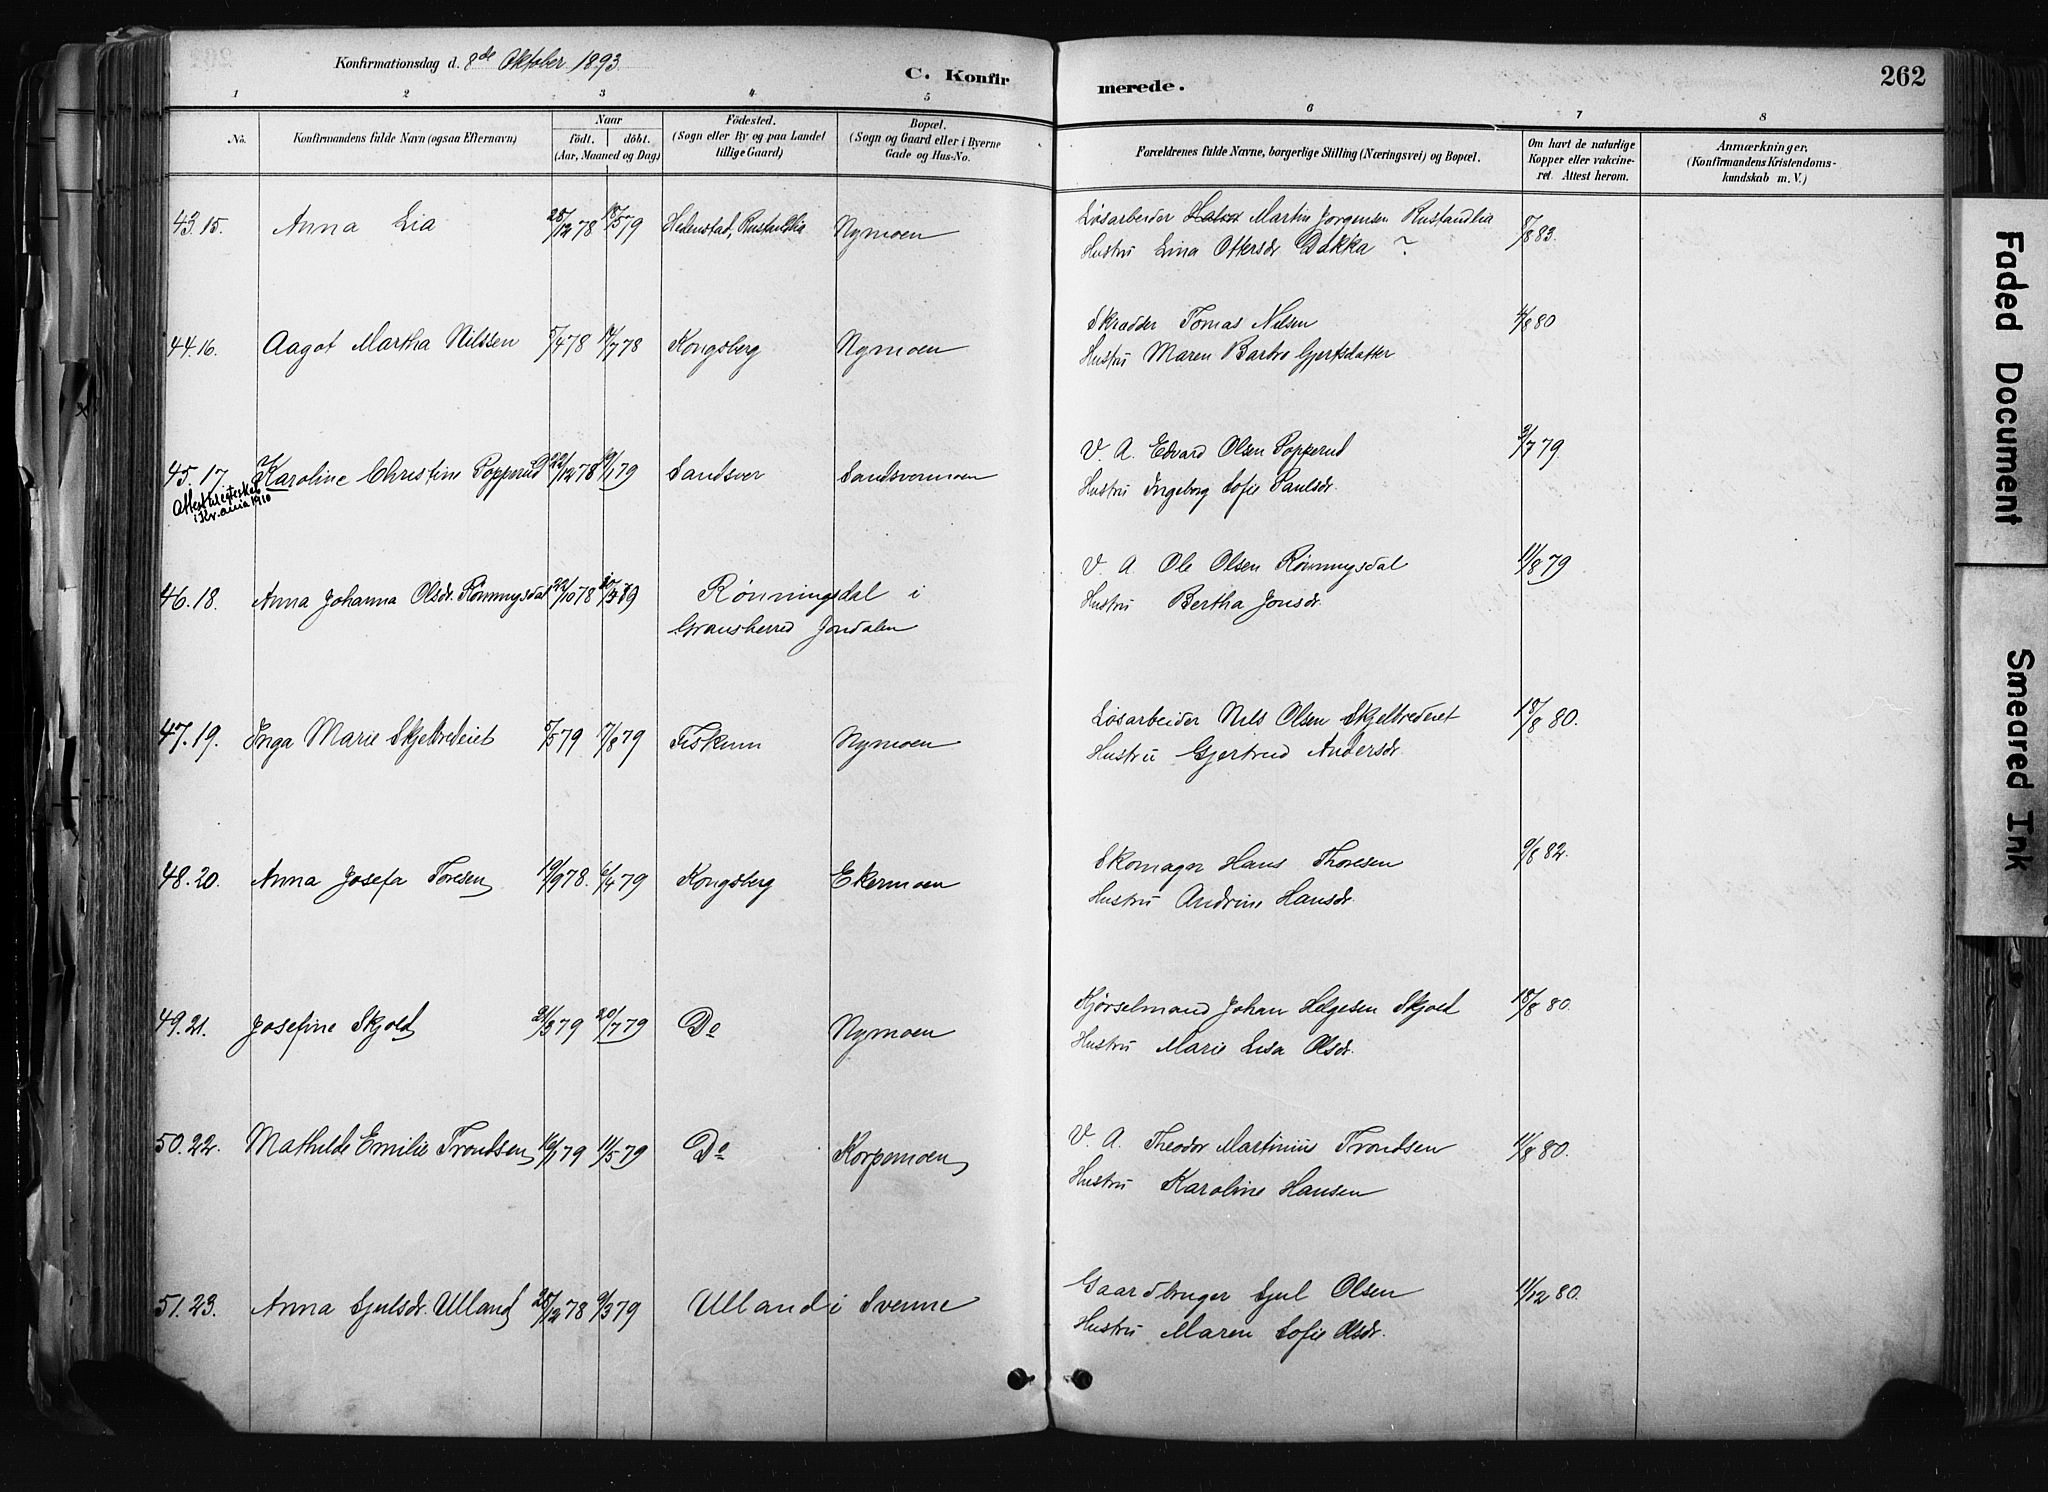 Konfirmationsdag d. 8de Oktober 1893.
C. Konfir merede. 262
1 2 3 4 5 6 7 8
No. Konfirmandens fulde Navn (ogsaa Efternavn) Naar födt. döbt. (Aar, Maaned og Dag) Födested. (Sogn eller By og paa Landet tillige Gaard) Bopæl. (Sogn og Gaard eller i Byerne Gade og Hus-No. Forældrenes fulde Navne, borgerlige Stilling (Næringsvei) og Bopæl. Om havt de naturlige Kopper eller vakcineret. Attest herom. Anmærkninger. (Konfirmandens Kristendomskundskab m. V.)
43.15. Anna Lia 28/12 78 18/5 79 Hedenstad, Rustandlia Nymoen Løsarbeider Martin Jorgensen Rustandlia 8/8 83.
Hustru Lina Ottersdr Bakka ~
44.16. Aagot Martha Nilssen 5/4 78 14/7 78 Kongsberg Nymoen Skrædder Tomas Nilsen 4/8 80
Hustru Maren Barbro Gjertsdatter
45.17. Karoline Christine Popperud 22/12 78 19/1 79 Sandsver Sandsvermoen V. A. Edvard Olsen Popperud 3/7 79
Attest
i Kr.ania 1910
Hustru Ingeborg Sofie Paulsdr.
46.18. Anna Johanna Olsdr. Rönningsdal 22/10 78 Rönningsdal i V. A Ole Olsen Rönningsdal 11/8 79
Gransherred Jondalen Hustru Bertha Jonsdr.
47.19. Inga Marie Skjelbredeiet 5/5 79 17/8 79 Fiskum Nymoen Løsarbeider Nils Olsen Skjelbredeiet 18/8 80.
Hustru Gjertrud Andersdr.
48.20. Anna Josefa Toresen 19/9 78. 6/4 79 Kongsberg Ekermoen Skomager Hans Thoresen 9/8 82.
Hustru Andrine Hansdr.
49.21. Josefine Skjold 21/3 79 20/7 79 Do Nymoen Kjørselmand Johan Helgesen Skjold 18/8 80.
Hustru Marie Lisa Olsdr.
50.22. Mathilde Emilie Trondsen 16/1 79 11/5 79 Do Korpemoen V. A. Theodor Martinius Trondsen 11/8 80.
Hustru Karoline Hansen
51.23. Anna Sjulsdr. Ulland 28/12 78 9/3 79 Ulland i Svenne Gaardbruger Sjul Olsen 11/12 80.
Hustru Maren Sofie Olsdr.
Faded Document
Smeared Ink